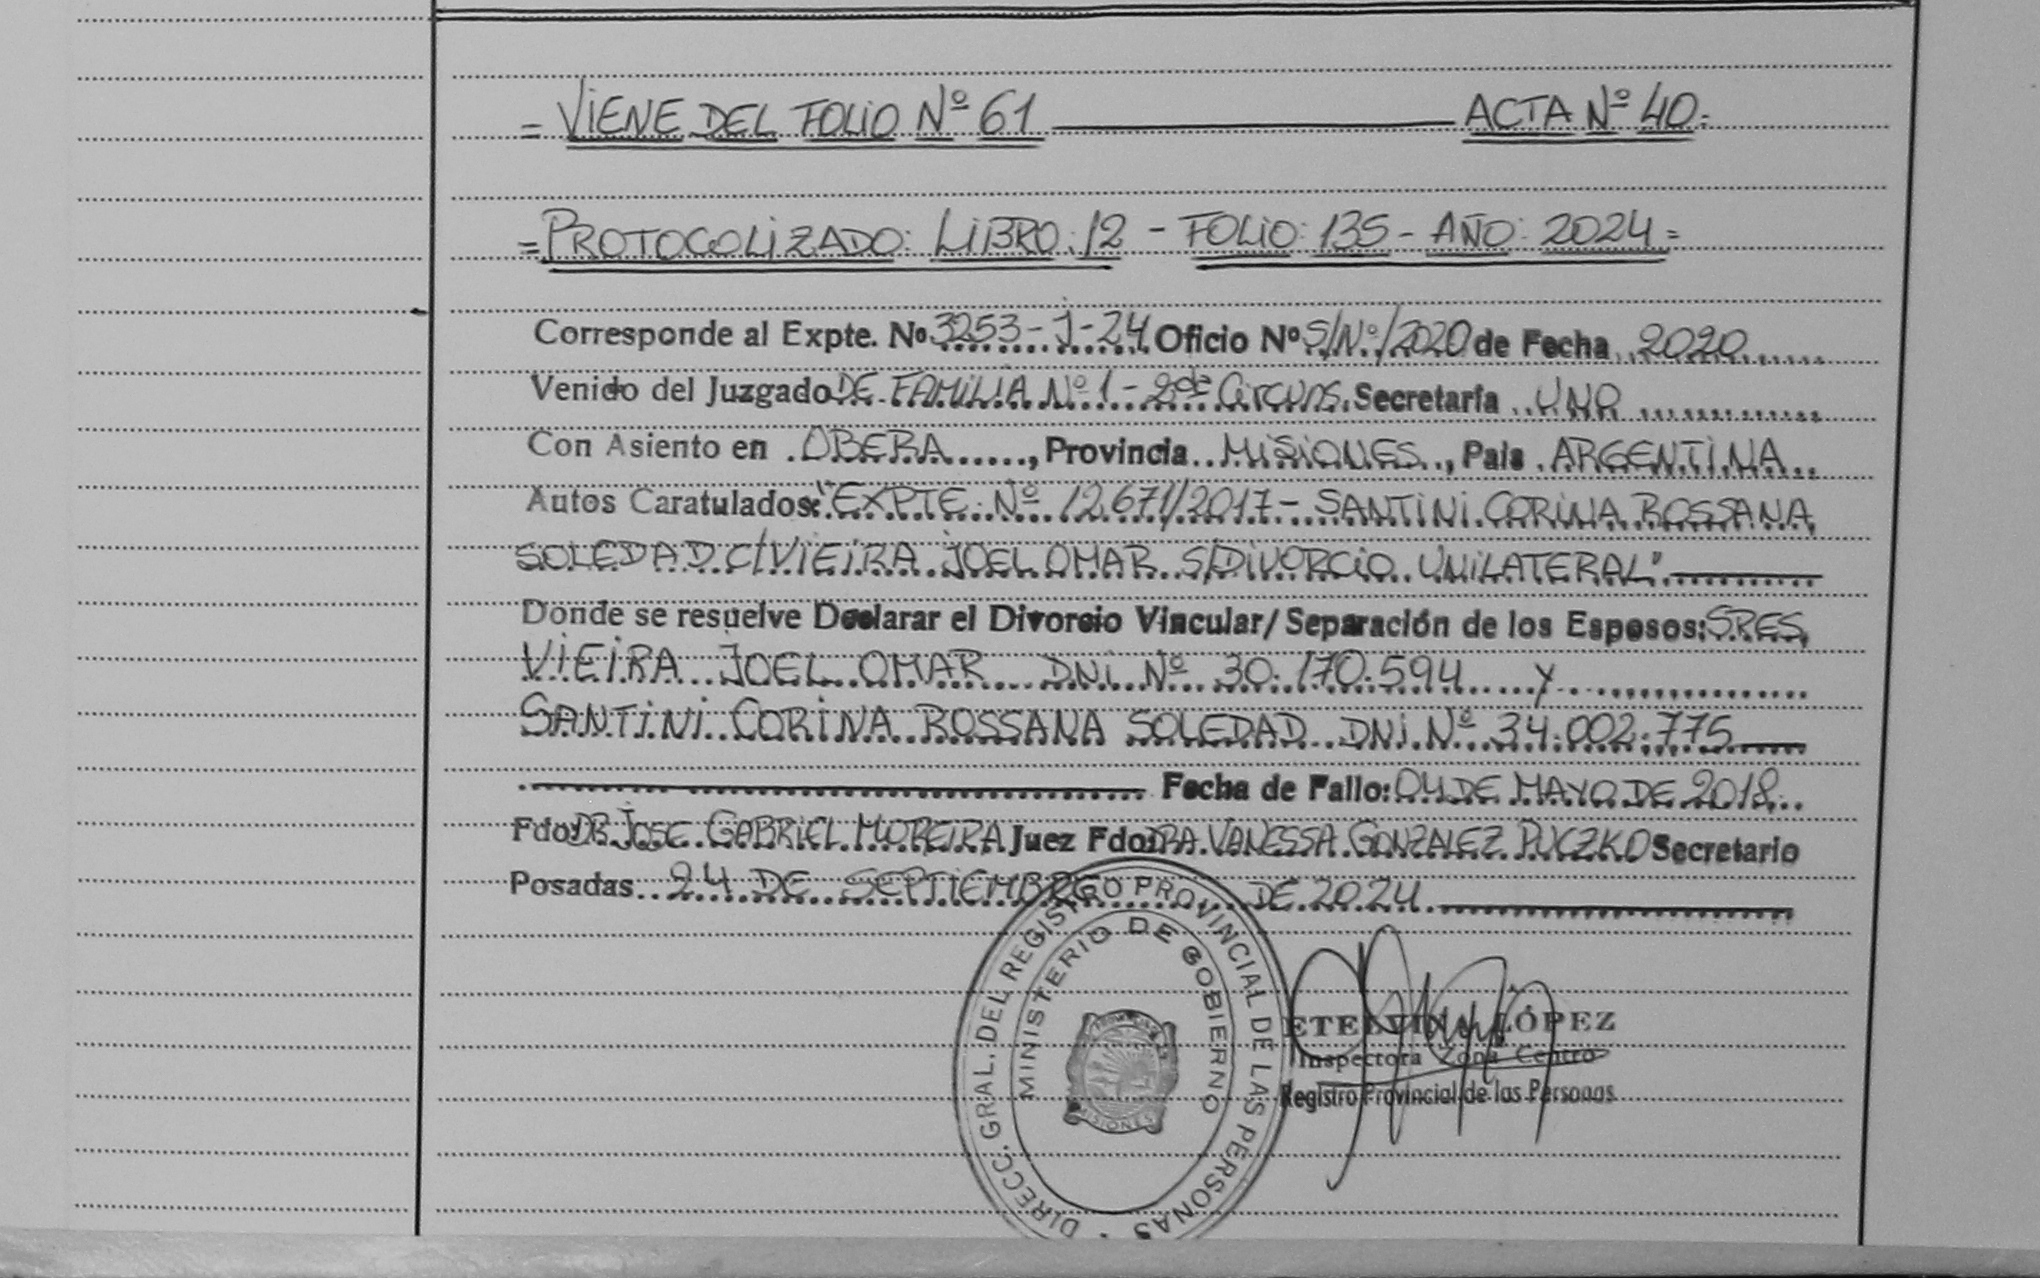 = VIENE DEL FOLIO Nº 61 ACTA Nº 40=
= PROTOCOLIZADO: LIBRO: 12 - FOLIO: 135 - AÑO: 2024=
Corresponde al Expte. Nº 3253-J-24 Oficio Nº S/Nº/2020 de Fecha 2020
Venido del Juzgado DE FAMILIA Nº 1 - 2da Circuns. Secretaría UNO
Con Asiento en OBERA, Provincia MISIONES, País ARGENTINA
Autos Caratulados: "EXPTE. Nº 12.671/2017 - SANTINI CORINA ROSSANA
SOLEDAD C/VIEIRA JOEL OMAR S/DIVORCIO UNILATERAL"
Donde se resuelve Declarar el Divorcio Vincular/ Separación de los Esposos: SRES.
VIEIRA JOEL OMAR DNI Nº 30.170.594 y
SANTINI CORINA ROSSANA SOLEDAD DNI Nº 34.002.775
Fecha de Fallo: 04 DE MAYO DE 2018
Fdo: DR. JOSE GABRIEL MOREIRA Juez Fdo: DRA. VANESSA GONZALEZ PUCZKO Secretario
Posadas 24 DE SEPTIEMBRE DE 2024
DIRECC. GRAL. DEL REGISTRO PROVINCIAL DE LAS PERSONAS
MINISTERIO DE GOBIERNO
MISIONES
ETELVINA LÓPEZ
Inspectora Zona Centro
Registro Provincial de las Personas